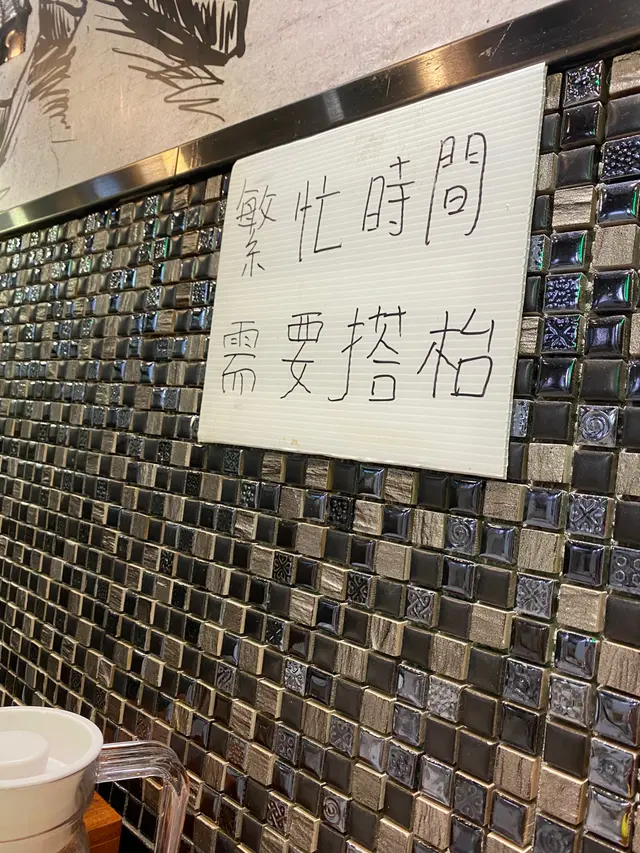 繁忙時間
需要搭枱